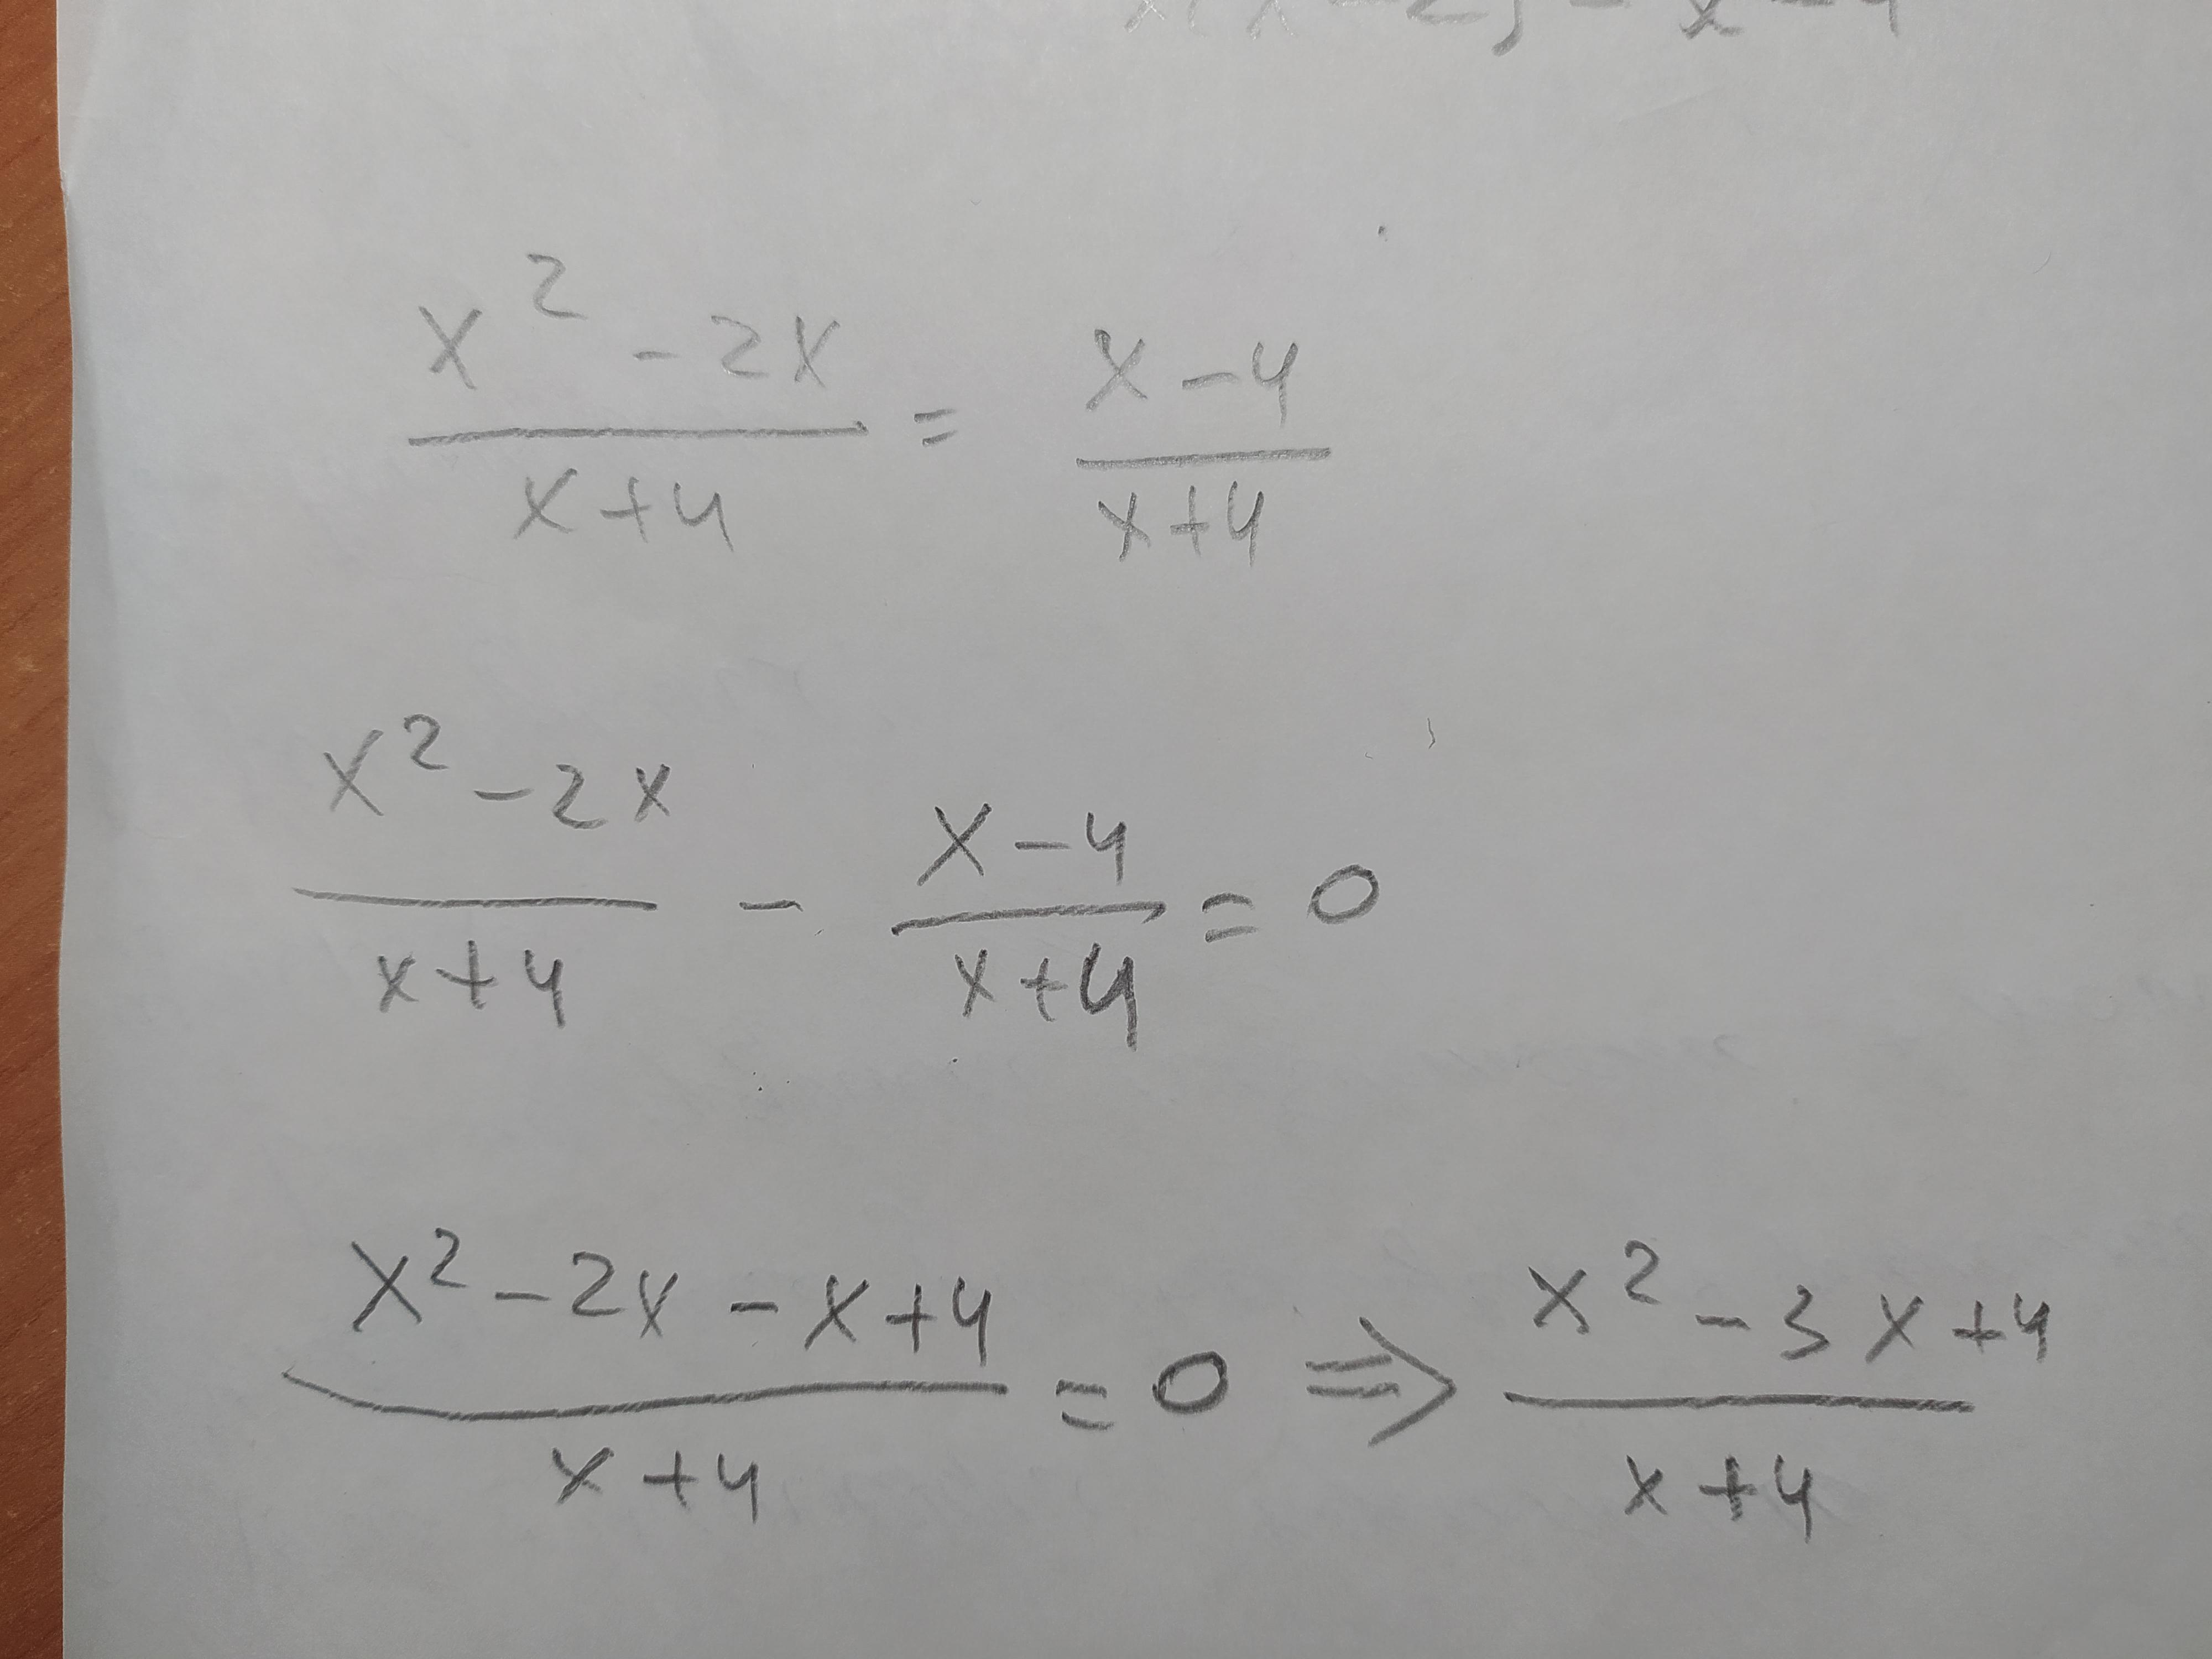 x² - 2x / x+4 = x-4 / x+4
x² - 2x / x+4 - x-4 / x+4 = 0
x² - 2x - x+4 / x+4 = 0 ⇒ x² - 3x+4 / x+4